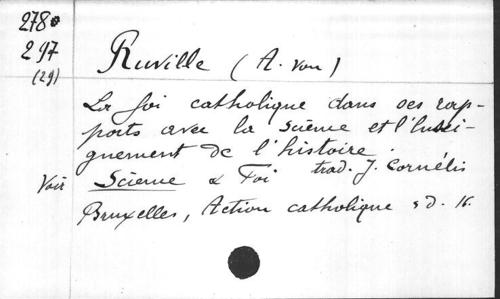 278
297
(29)
Ruville (A. von)
La foi catholique dans ses rap-
ports avec la science et l'ensei-
gnement de l'histoire.
trad. J. Cornélis
Voir Science & Foi
Bruxelles, Action catholique s d. 16.